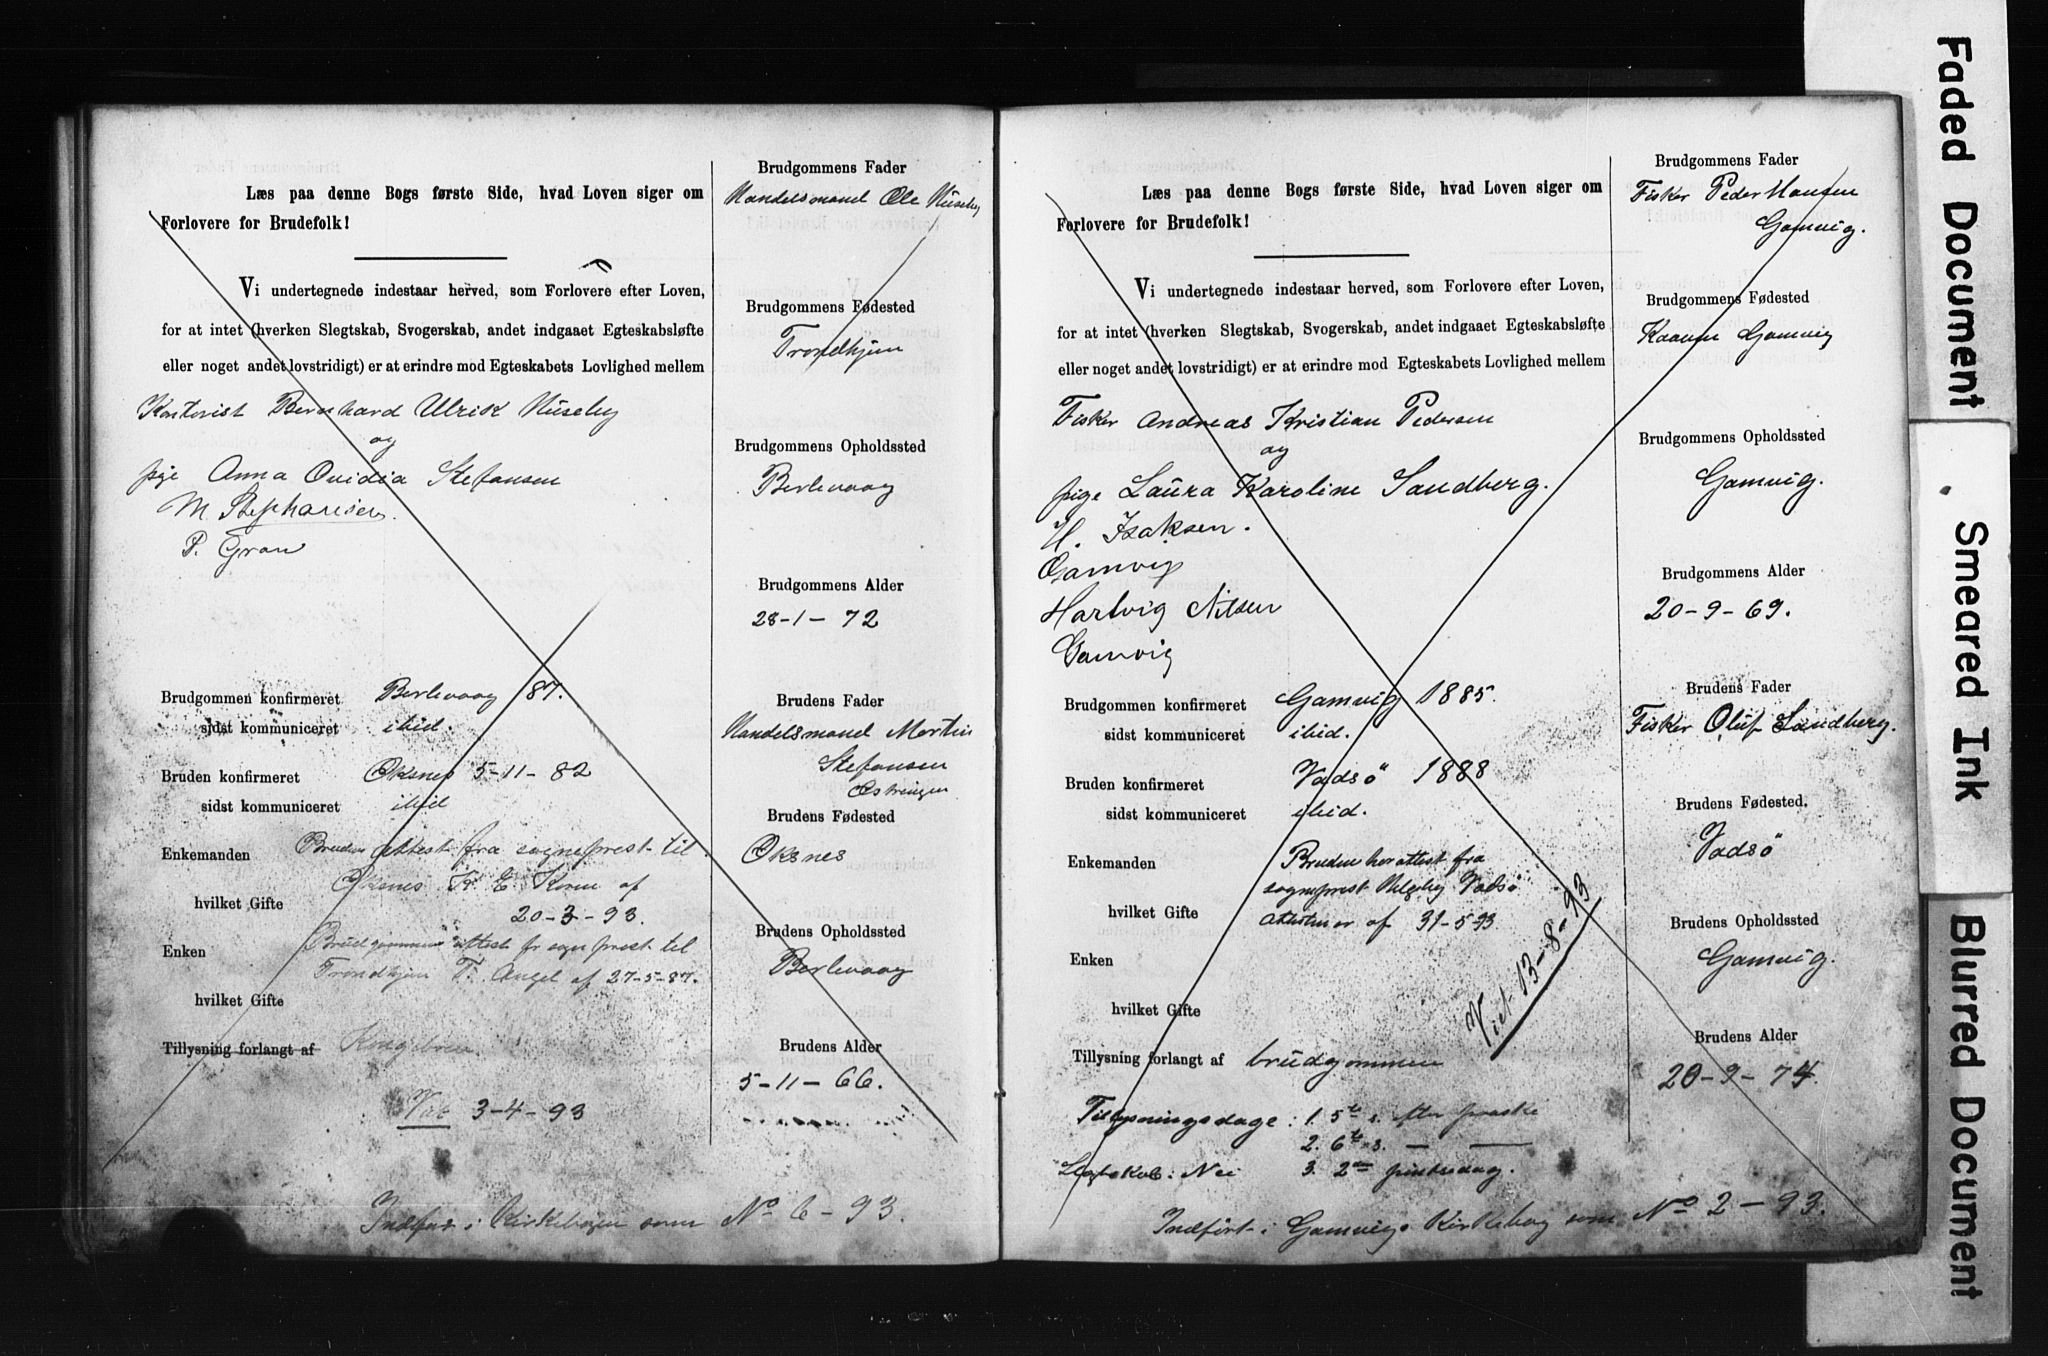 Læs paa denne Bogs første Side, hvad Loven siger om
Forlovere for Brudefolk!
Vi undertegnede indestaar herved, som Forlovere efter Loven,
for at intet (hverken Slegtskab, Svogerskab, andet indgaaet Egteskabsløfte
eller noget andet lovstridigt) er at erindre mod Egteskabets Lovlighed mellem
Kontorist Bernhard Ulrik Huseby
og
pige Anna Ovidia Stefansen
M Stephansen.
P. Gran
Brudgommen konfirmeret Berlevaag 87.
sidst kommuniceret ibid.
Bruden konfirmeret Øksnes 5-11-82
sidst kommuniceret ibid
Enkemanden Bruden attest fra sogneprest til
Øksnes K. E. Koren af
hvilket Gifte 20-3-93.
Enken Brudgommens attest fr sognprest til
Trondhjem T. Angel af 27-5-87.
hvilket Gifte
Tillysning forlangt af
Viet 3-4-93
Indført i Kirkebogen som No 6-93.
Brudgommens Fader
Handelsmand Ole Huseby
Brudgommens Fødested
Trondhjem
Brudgommens Opholdssted
Berlevaag
Brudgommens Alder
28-1-72
Brudens Fader
Handelsmand Martin
Stefansen
Brudens Fødested
Øksnes
Brudens Opholdssted
Berlevaag
Brudens Alder
5-11-66.
Læs paa denne Bogs første Side, hvad Loven siger om
Forlovere for Brudefolk!
Vi undertegnede indestaar herved, som Forlovere efter Loven,
for at intet (hverken Slegtskab, Svogerskab, andet indgaaet Egteskabsløfte
eller noget andet lovstridigt) er at erindre mod Egteskabets Lovlighed mellem
Fisker Andreas Kristian Pedersen
og
pige Laura Karoline Sandberg.
H. Isaksen.
Gamvig
Hartvig Nilsen
Gamvig
Brudgommen konfirmeret Gamvig 1885.
sidst kommuniceret ibid.
Bruden konfirmeret Vadsö 1888
sidst kommuniceret ibid.
Enkemanden Bruden har attest fra
sogneprest Vadsö
hvilket Gifte Attesten er af 31-5-93
Enken
hvilket Gifte
Viet 13-8-93
Tillysning forlangt af brudgommen
Tillysningsdage: 1. 5te s. efter paaske
2. 6te s. — —
Legtskab: Nei 3. 2den pintsedag.
Indført i Gamvigs Kirkebog som No 2-93.
Brudgommens Fader
Fisker Peder Hansen
Gamvig.
Brudgommens Fødested
Gamvig
Brudgommens Opholdssted
Gamvig.
Brudgommens Alder
20-9-69.
Brudens Fader
Fisker Oluf Sandberg.
Brudens Fødested.
Vadsö
Brudens Opholdssted
Gamvig.
Brudens Alder
20-9-74.
Faded Document
Smeared Ink
Blurred Document